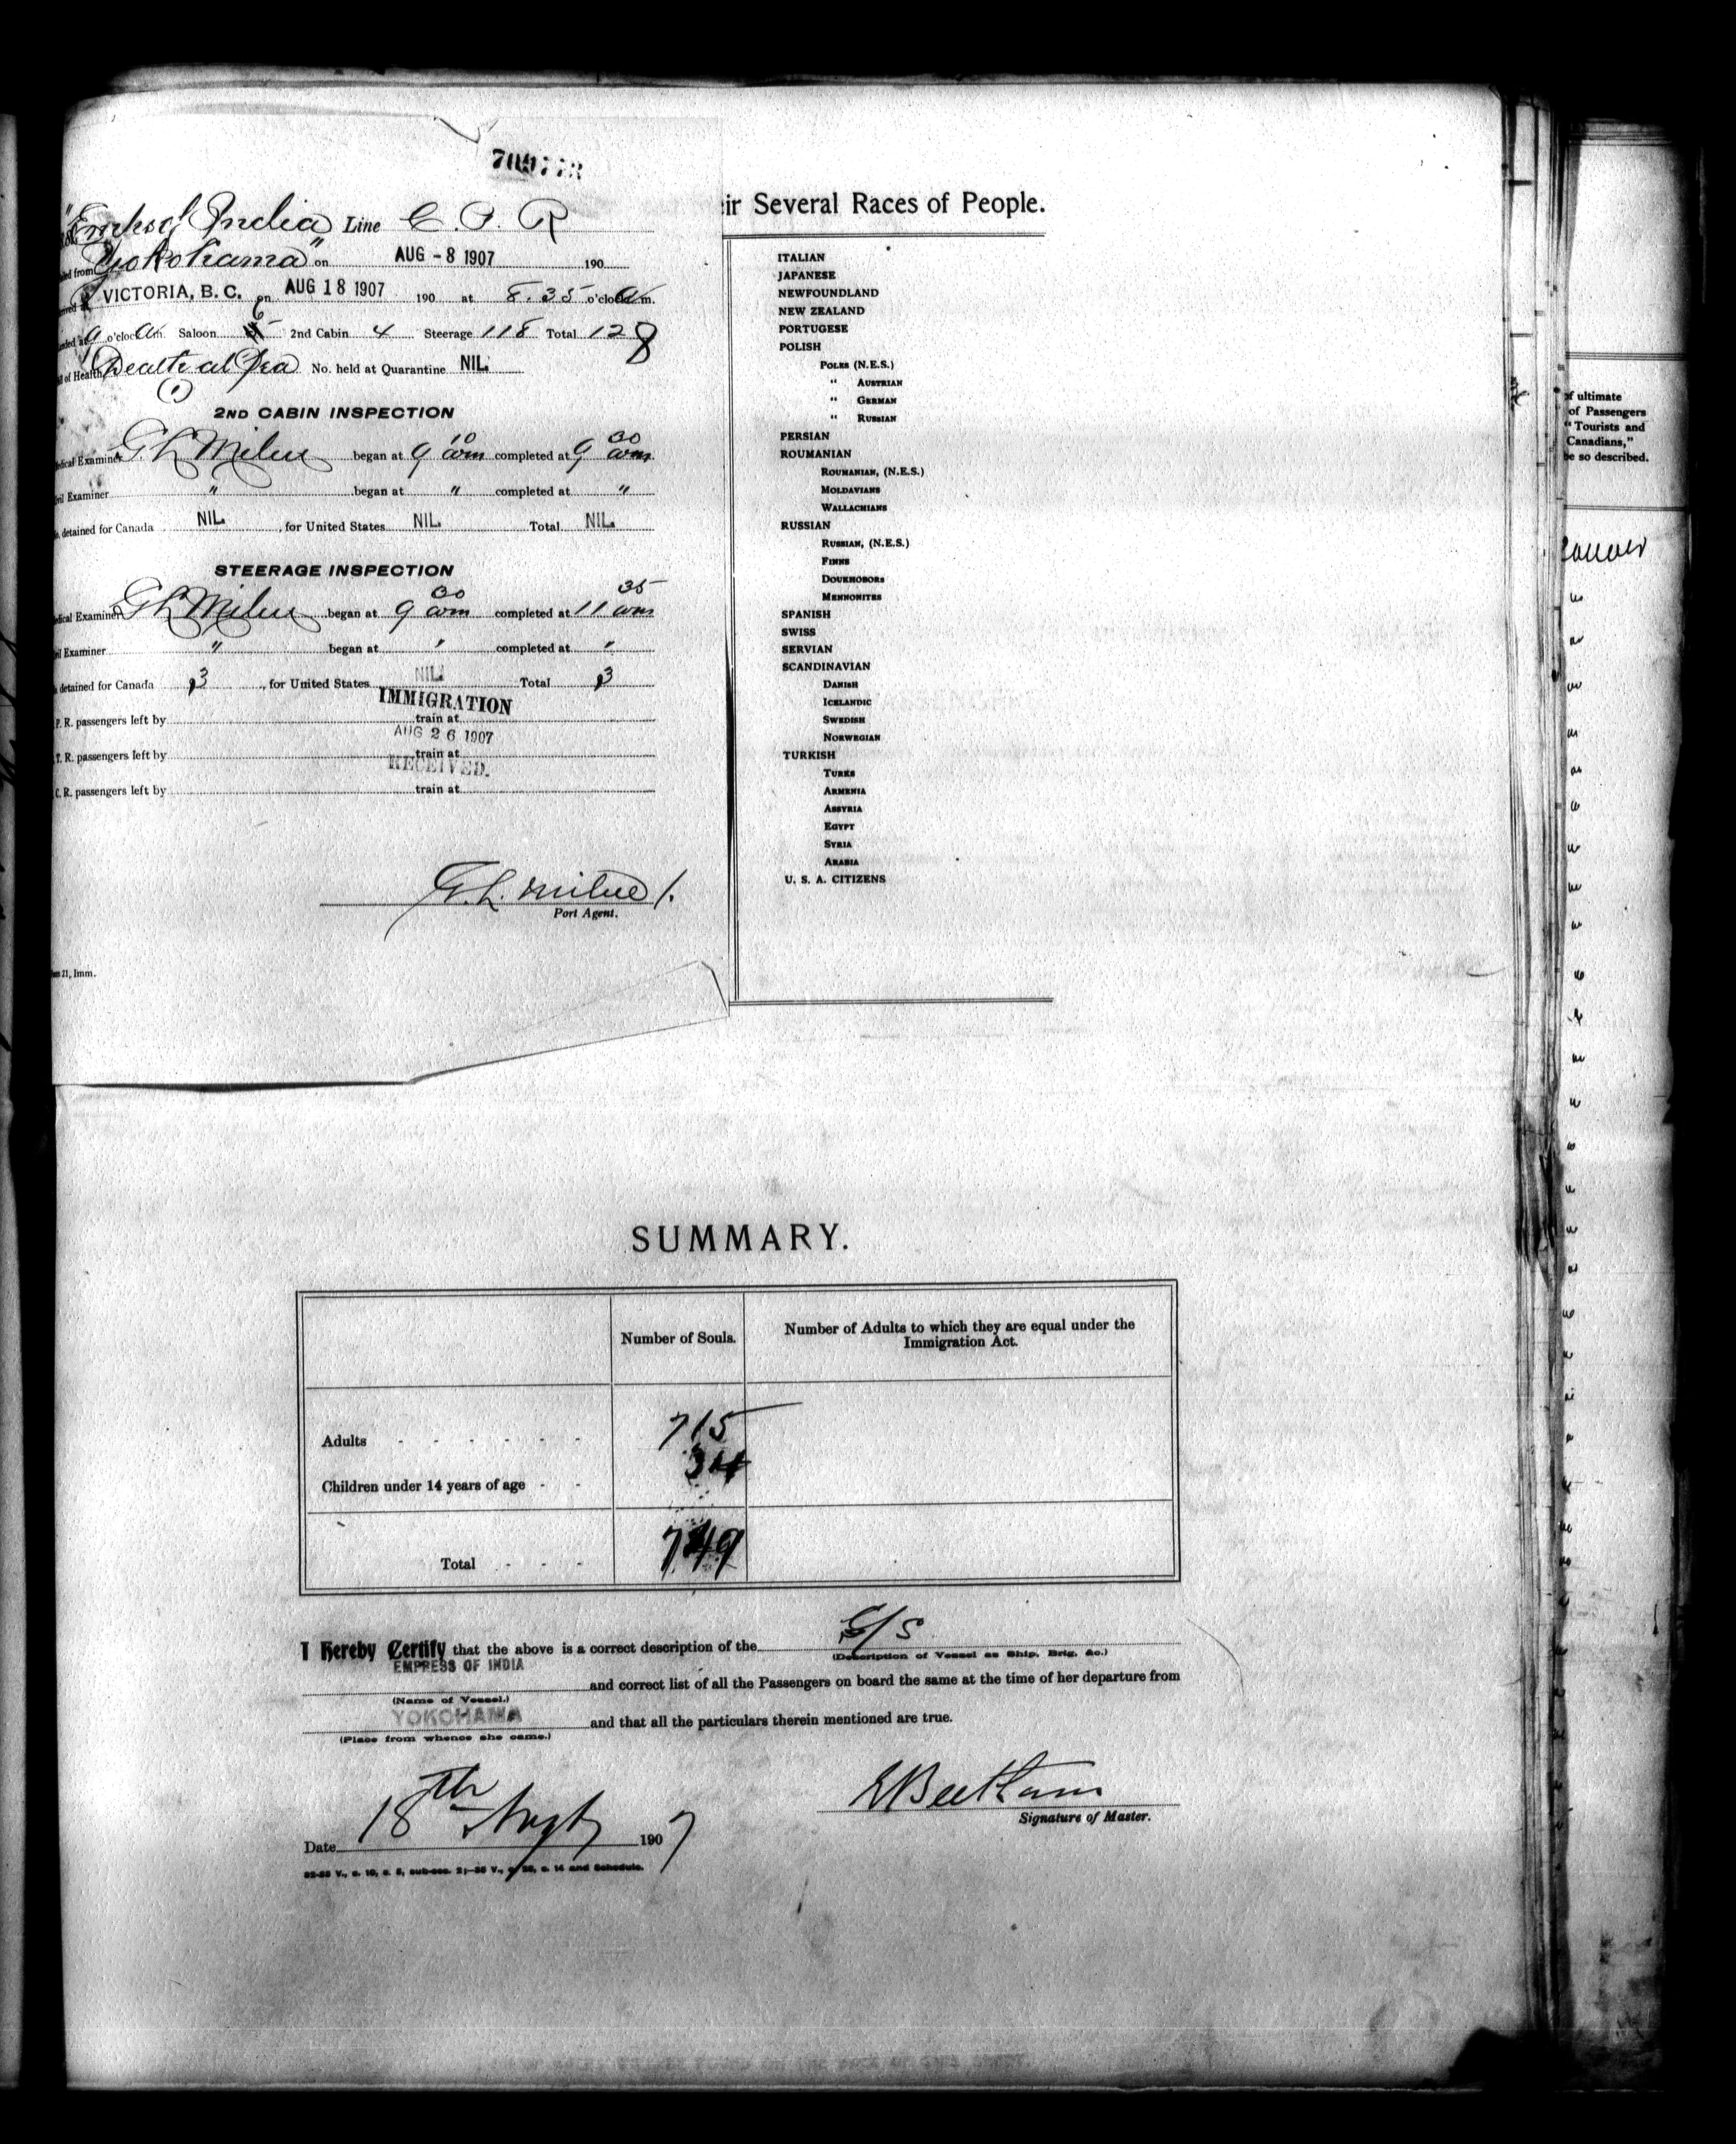 "Emps of India" Line C. P. R
from Yokohama on AUG - 8 1907 190
VICTORIA, B. C. on AUG 18 1907 190 at 8.35 o'clock a m.
9 o'clock a m. Saloon 6 2nd Cabin 4 Steerage 118 Total 128
of Health Death at Sea No. held at Quarantine NIL
(1)
2ND CABIN INSPECTION
Examiner G L Milne began at 9 10 am completed at 9 30 am
Examiner " began at " completed at "
detained for Canada NIL , for United States NIL Total NIL
STEERAGE INSPECTION
Examiner G L Milne began at 9 30 am completed at 11 35 am
Examiner " began at " completed at "
detained for Canada 3 , for United States NIL Total 3
IMMIGRATION
P. R. passengers left by train at
AUG 26 1907
T. R. passengers left by train at
RECEIVED.
C. R. passengers left by train at
G. L. Milne
Port Agent.
21, Imm.
ir Several Races of People.
ITALIAN
JAPANESE
NEWFOUNDLAND
NEW ZEALAND
PORTUGESE
POLISH
POLES (N.E.S.)
" AUSTRIAN
" GERMAN
" RUSSIAN
PERSIAN
ROUMANIAN
ROUMANIAN, (N.E.S.)
MOLDAVIANS
WALLACHIANS
RUSSIAN
RUSSIAN, (N.E.S.)
FINNS
DOUKHOBORS
MENNONITES
SPANISH
SWISS
SERVIAN
SCANDINAVIAN
DANISH
ICELANDIC
SWEDISH
NORWEGIAN
TURKISH
TURKS
ARMENIA
ASSYRIA
EGYPT
SYRIA
ARABIA
U. S. A. CITIZENS
of ultimate
of Passengers
"Tourists and
Canadians,"
be so described.
SUMMARY.
Number of Souls.
Number of Adults to which they are equal under the
Immigration Act.
Adults - - - - - - 715
Children under 14 years of age - - 34
Total - - - 749
I Hereby Certify that the above is a correct description of the S/S
(Description of Vessel as Ship, Brig, &c.)
EMPRESS OF INDIA
and correct list of all the Passengers on board the same at the time of her departure from
(Name of Vessel.)
YOKOHAMA and that all the particulars therein mentioned are true.
(Place from whence she came.)
E Beetham
Signature of Master.
Date 18th Augt 1907